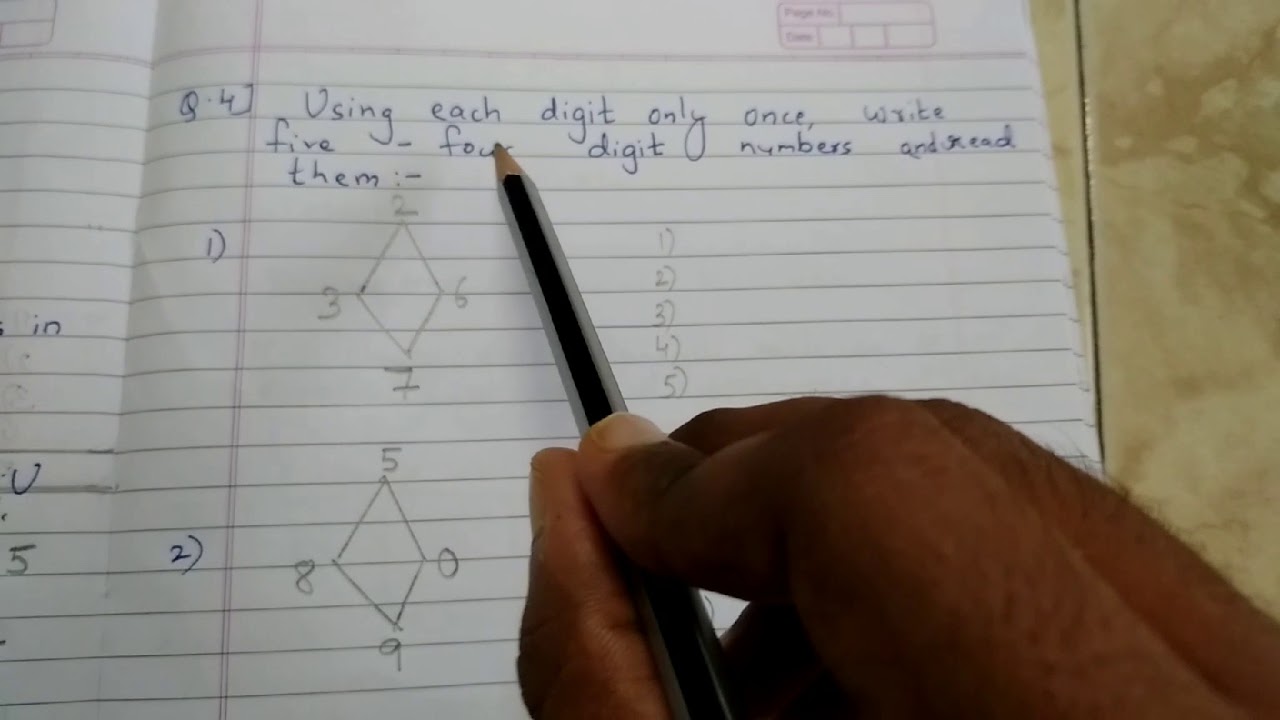 Page No.
Date
Q.4] Using each digit only once, write
five - four digit numbers and read
them :-
2
1)
3 6
7
1)
2)
3)
4)
5)
s in
U
5
5
2)
8 0
9